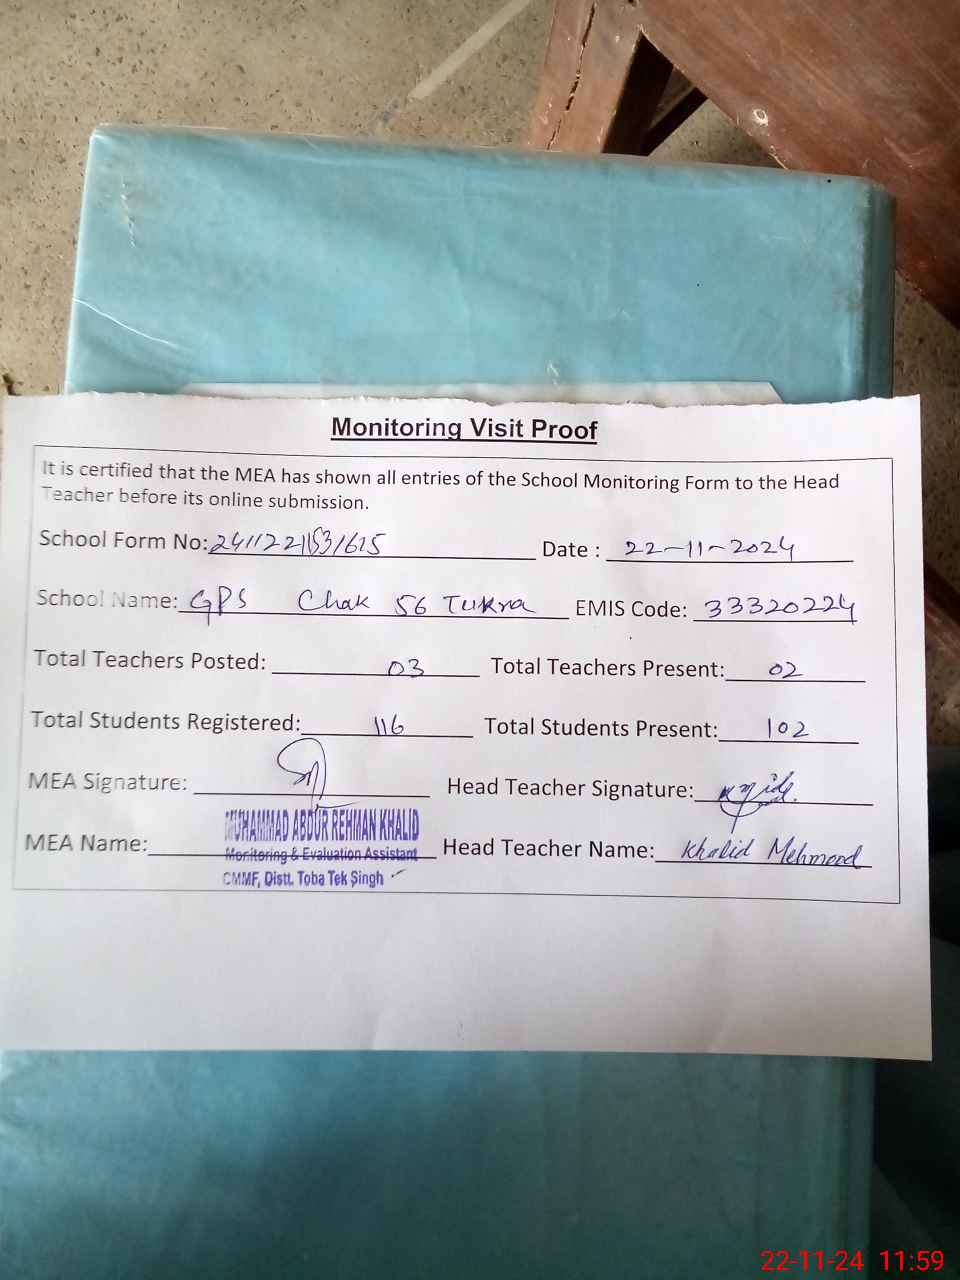 Monitoring Visit Proof
It is certified that the MEA has shown all entries of the School Monitoring Form to the Head
Teacher before its online submission.
School Form No: Date : 22-11-2024
School Name: GPS Chak 56 Tukra EMIS Code: 33320224
Total Teachers Posted: 03 Total Teachers Present: 02
Total Students Registered: 116 Total Students Present: 102
MEA Signature: Head Teacher Signature:
MEA Name: MUHAMMAD ABDUR REHMAN KHALID Head Teacher Name: Khalid Mehmood
Monitoring & Evaluation Assistant
CMMF, Distt. Toba Tek Singh
22-11-24 11:59